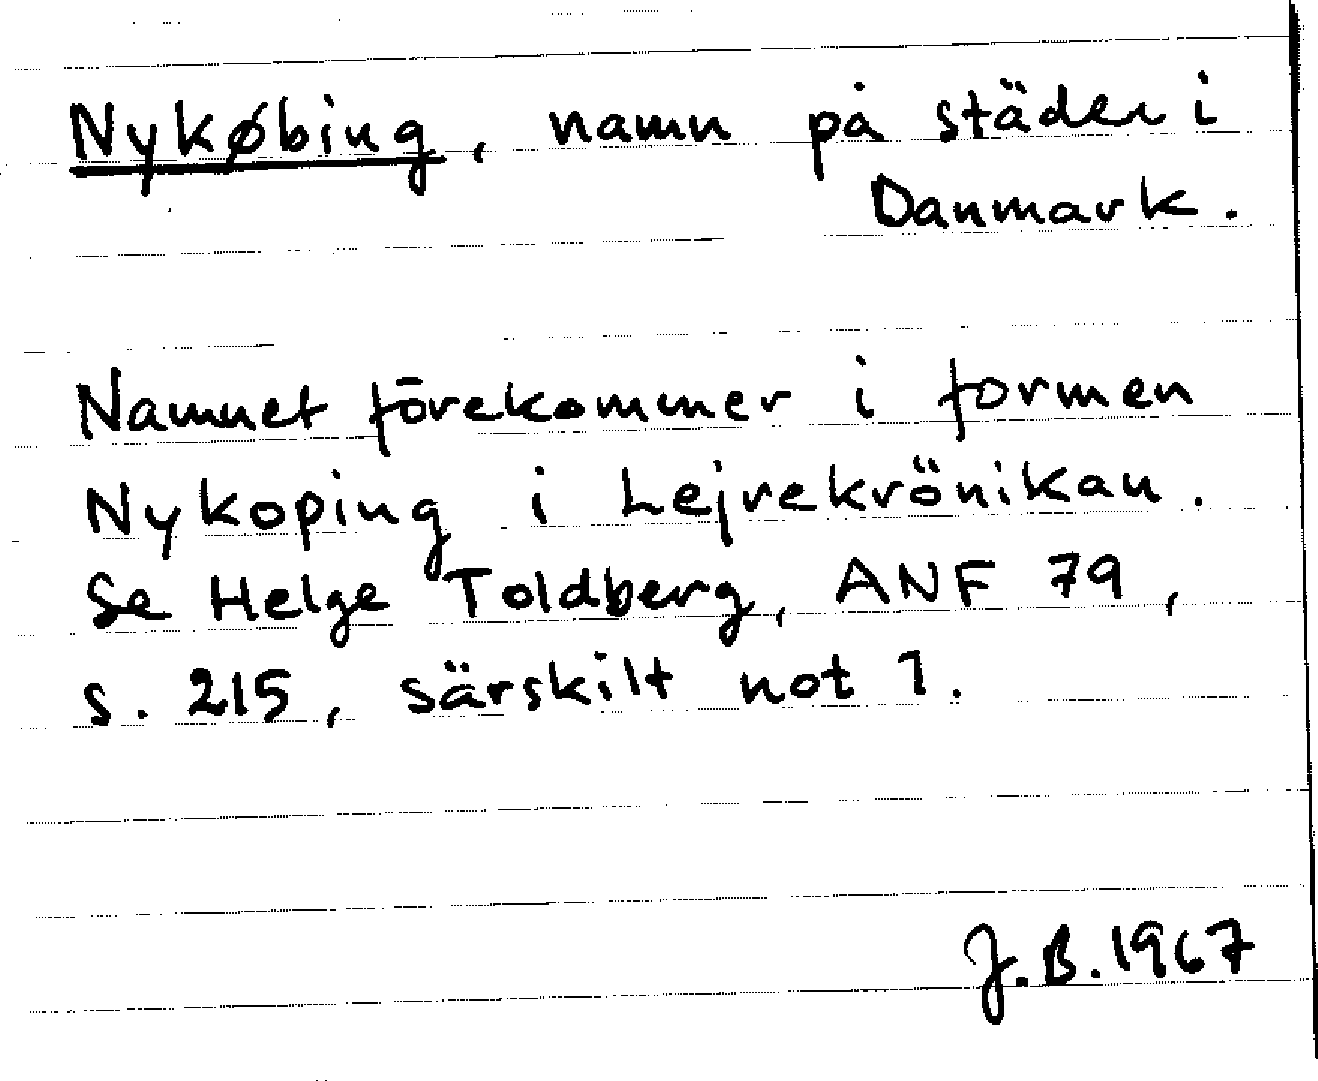 Nykøbing, namn på städer i
Danmark.
Namnet förekommer i formen
Nykoping i Lejrekrönikan.
Se Helge Toldberg, ANF 79,
s. 215, särskilt not 1.
J.B. 1967